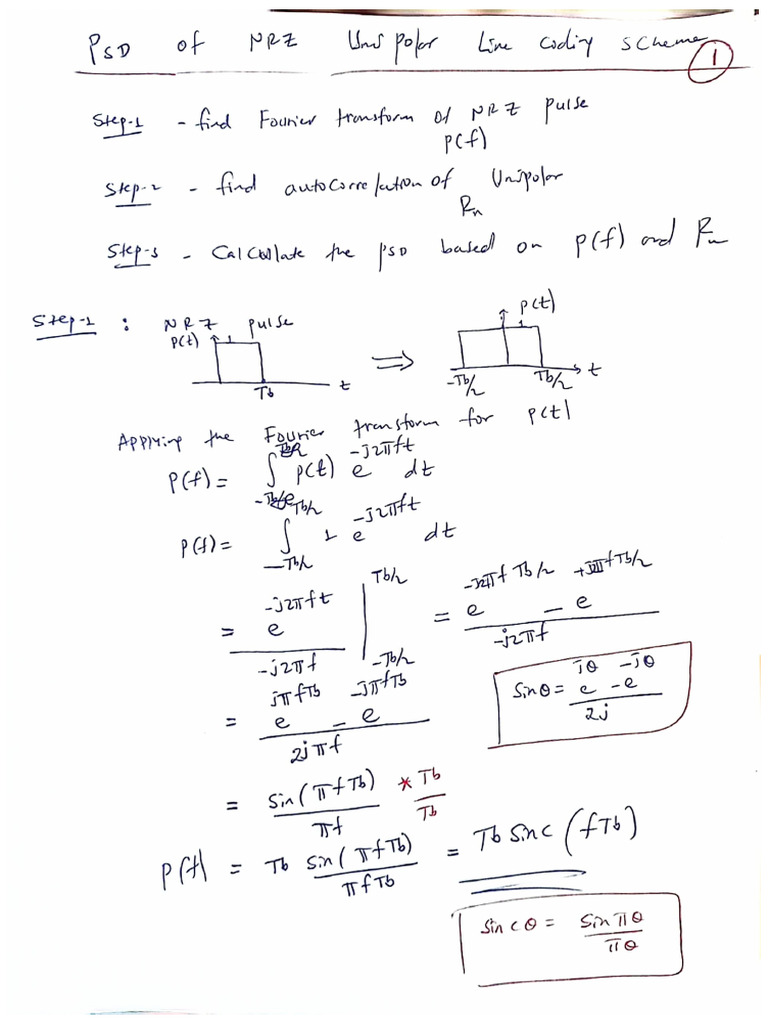 PSD of NRZ Unipolar Line coding scheme
1
Step-1 - find Fourier transform of NRZ pulse
P(f)
Step-2 - find autocorrelation of Unipolar
Rn
Step-3 - Calculate the PSD based on P(f) and Rn
Step-1 : NRZ pulse
P(t) 1
Tb t
⇒
P(t)
1
-Tb/2 Tb/2 t
Applying the Fourier transform for P(t)
P(f) = ∫ P(t) e^{-j2πft} dt
P(f) = ∫_{-Tb/2}^{Tb/2} 1 e^{-j2πft} dt
= e^{-j2πft} / -j2πf |_{-Tb/2}^{Tb/2} = e^{-j2πfTb/2} - e^{+j2πfTb/2} / -j2πf
= e^{jπfTb} - e^{-jπfTb} / 2jπf
Sinθ = e^{jθ} - e^{-jθ} / 2j
= Sin(πfTb) / πf * Tb / Tb
P(f) = Tb sin(πfTb) / πfTb = Tb Sinc (fTb)
Sincθ = Sinπθ / πθ